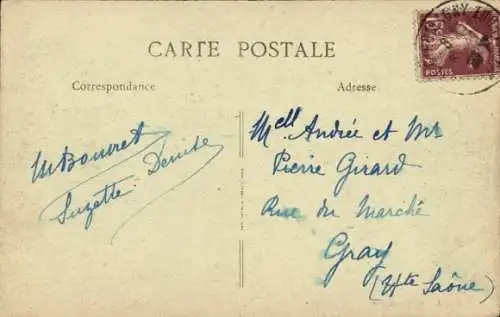 CARTE POSTALE
Correspondance
Adresse
Mell Andrée et Mr
Pierre Girard
Rue du Marché
Gray
(Hte Saône)
M Bouvret
Suzette Denise
POSTES